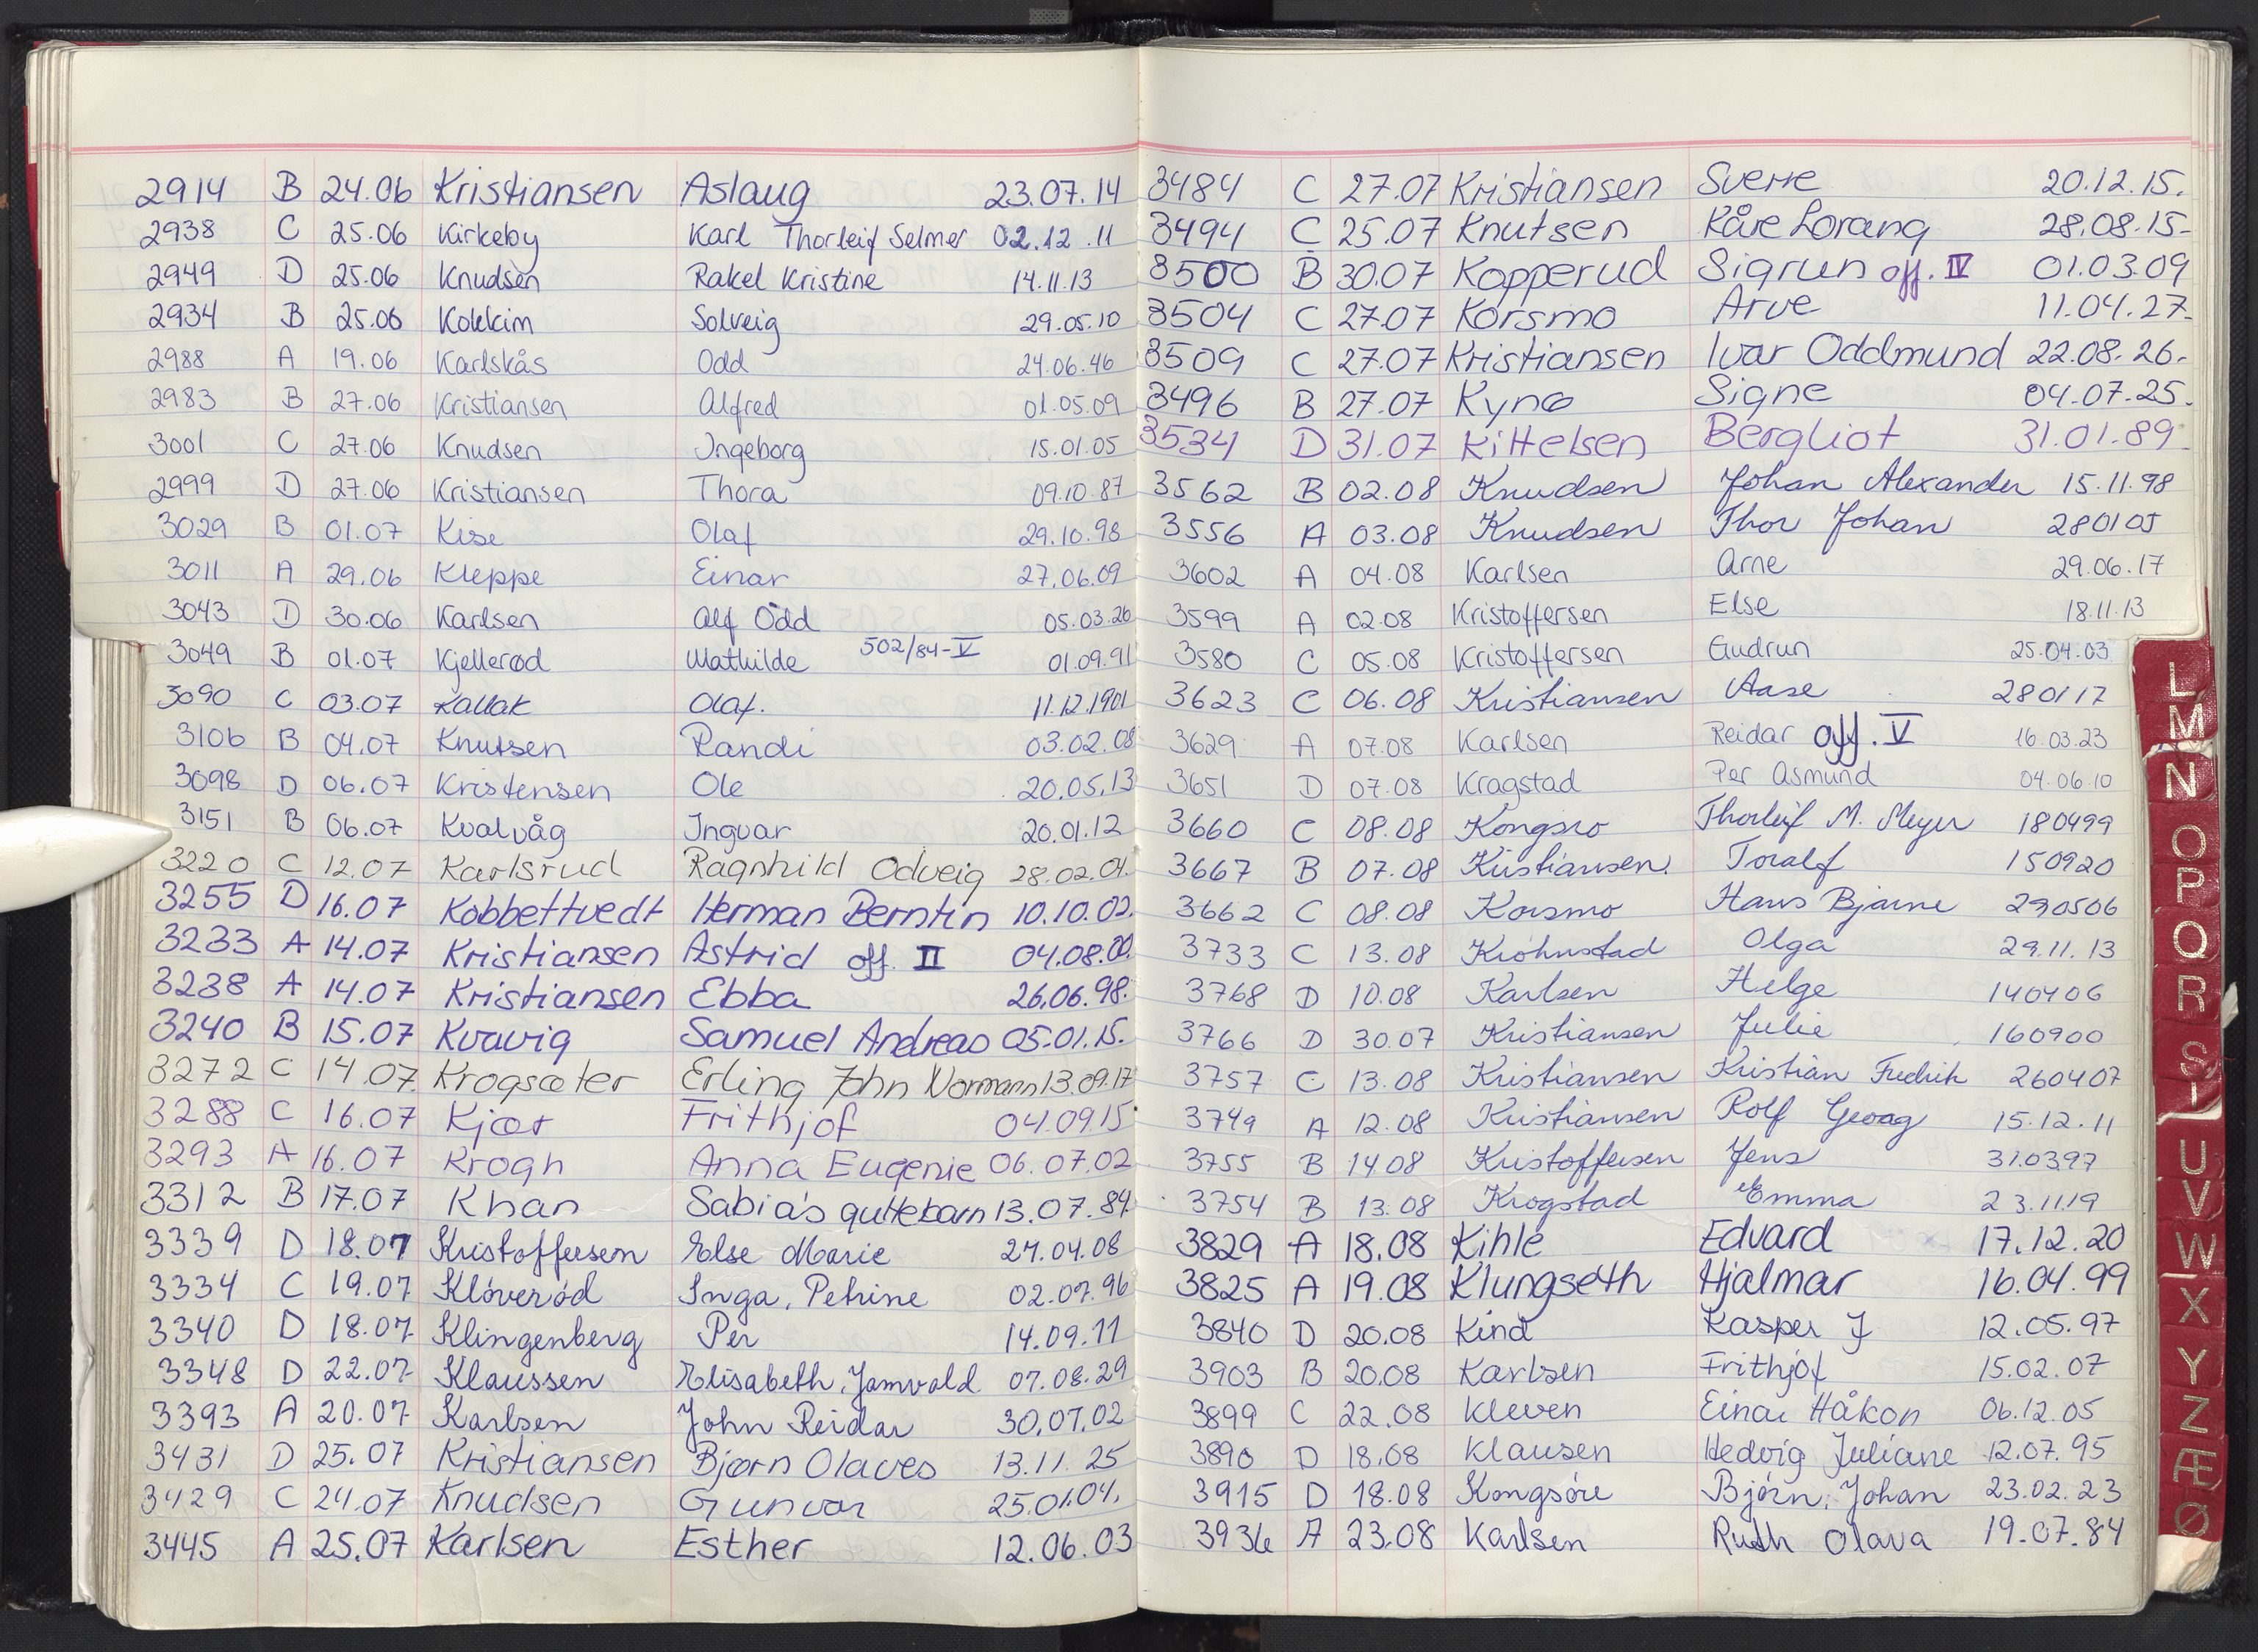 2914 B 24.06 Kristiansen Aslaug 23.07.14
2938 C 25.06 Kirkeby Karl Thorleif Selmer 02.12.11
2949 D 25.06 Knudsen Rakel Kristine 14.11.13
2934 B 25.06 Kokkim Solveig 29.05.10
2988 A 19.06 Karlskås Odd 24.06.46
2983 B 27.06 Kristiansen Alfred 01.05.09
3001 C 27.06 Knudsen Ingeborg 15.01.05
2999 D 27.06 Kristiansen Thora 09.10.87
3029 B 01.07 Kise Olaf 29.10.98
3011 A 29.06 Kleppe Einar 27.06.09
3043 D 30.06 Karlsen Alf Odd 05.03.26
3049 B 01.07 Kjellerød Mathilde 502/84-V 01.09.91
3090 C 03.07 Kallak Olaf. 11.12.1901
3106 B 04.07 Knutsen Randi 03.02.08
3098 D 06.07 Kristensen Ole 20.05.13
3151 B 06.07 Kvalvåg Ingvar 20.01.12
3220 C 12.07 Karlsrud Ragnhild Odveig 28.02.04.
3255 D 16.07 Kobbeltvedt Herman Berntin 10.10.02.
3233 A 14.07 Kristiansen Astrid off. II 04.08.00.
3238 A 14.07 Kristiansen Ebba 26.06.98.
3240 B 15.07 Kvavig Samuel Andreas 05.01.15.
3272 C 14.07. Krogsæter Erling John Normann 13.09.17
3288 C 16.07 Kjær Frithjof 04.09.15
3293 A 16.07 Krogh Anna Eugenie 06.07.02
3312 B 17.07 Khan Sabia's guttebarn 13.07.84.
3339 D 18.07 Kristoffersen Else Marie 27.04.08
3334 C 19.07 Kløverød Inga, Petrine 02.07.96
3340 D 18.07 Klingenberg Per 14.09.11
3348 D 22.07 Klaussen Elisabeth, Jamvold 07.08.29
3393 A 20.07 Karlsen John Reidar 30.07.02
3431 D 25.07 Kristiansen Bjørn Olaves 13.11.25
3429 C 24.07 Knudsen Gunvor 25.01.04.
3445 A 25.07 Karlsen Esther 12.06.03
3484 C 27.07 Kristiansen Sverre 20.12.15.
3494 C 25.07 Knutsen Kåre Lorang 28.08.15-
3500 B 30.07 Kopperud Sigrun off. IV 01.03.09
3504 C 27.07 Korsmo Arve 11.04.27-
3509 C 27.07 Kristiansen Ivar Oddmund 22.08.26.
3496 B 27.07 Kynø Signe 04.07.25.
3534 D 31.07 Kittelsen Bergliot 31.01.89-
3562 B 02.08 Knudsen Johan Alexander 15.11.98
3556 A 03.08 Knudsen Thor Johan 280105
3602 A 04.08 Karlsen Arne 29.06.17
3599 A 02.08 Kristoffersen Else 18.11.13
3580 C 05.08 Kristoffersen Gudrun 25.04.03
3623 C 06.08 Kristiansen Aase 280117
3629 A 07.08 Karlsen Reidar off. V 16.03.23
3651 D 07.08 Kragstad Per Asmund 04.06.10
3660 C 08.08 Kongsro Thorleif M. Meyer 180499
3667 B 07.08 Kristiansen. Toralf 150920
3662 C 08.08 Korsmo Hans Bjarne 290506
3733 C 13.08 Krohnstad Olga 29.11.13
3768 D 10.08 Karlsen Helge 140406
3766 D 30.07 Kristiansen Julie 160900
3757 C 13.08 Kristiansen Kristian Fredrik 260407
3749 A 12.08 Kristiansen Rolf Georg 15.12.11
3755 B 14.08 Kristoffersen Jens 31.0397
3754 B 13.08 Krogstad Emma 23.1119
3829 A 18.08 Kihle Edvard 17.12.20
3825 A 19.08 Klungseth Hjalmar 16.04.99
3840 D 20.08 Kind Kasper J 12.05.97
3903 B 20.08 Karlsen Frithjof 15.02.07
3899 C 22.08 Kleven Einar Håkon 06.12.05
3890 D 18.08 Klausen Hedvig Juliane 12.07.95
3915 D 18.08 Kongsøre Bjørn, Johan 23.02.23
3936 A 23.08 Karlsen Ruth Olava 19.07.84
L
M
N
O
P
Q
R
S
T
U
V
W
X
Y
Z
Æ
Ø